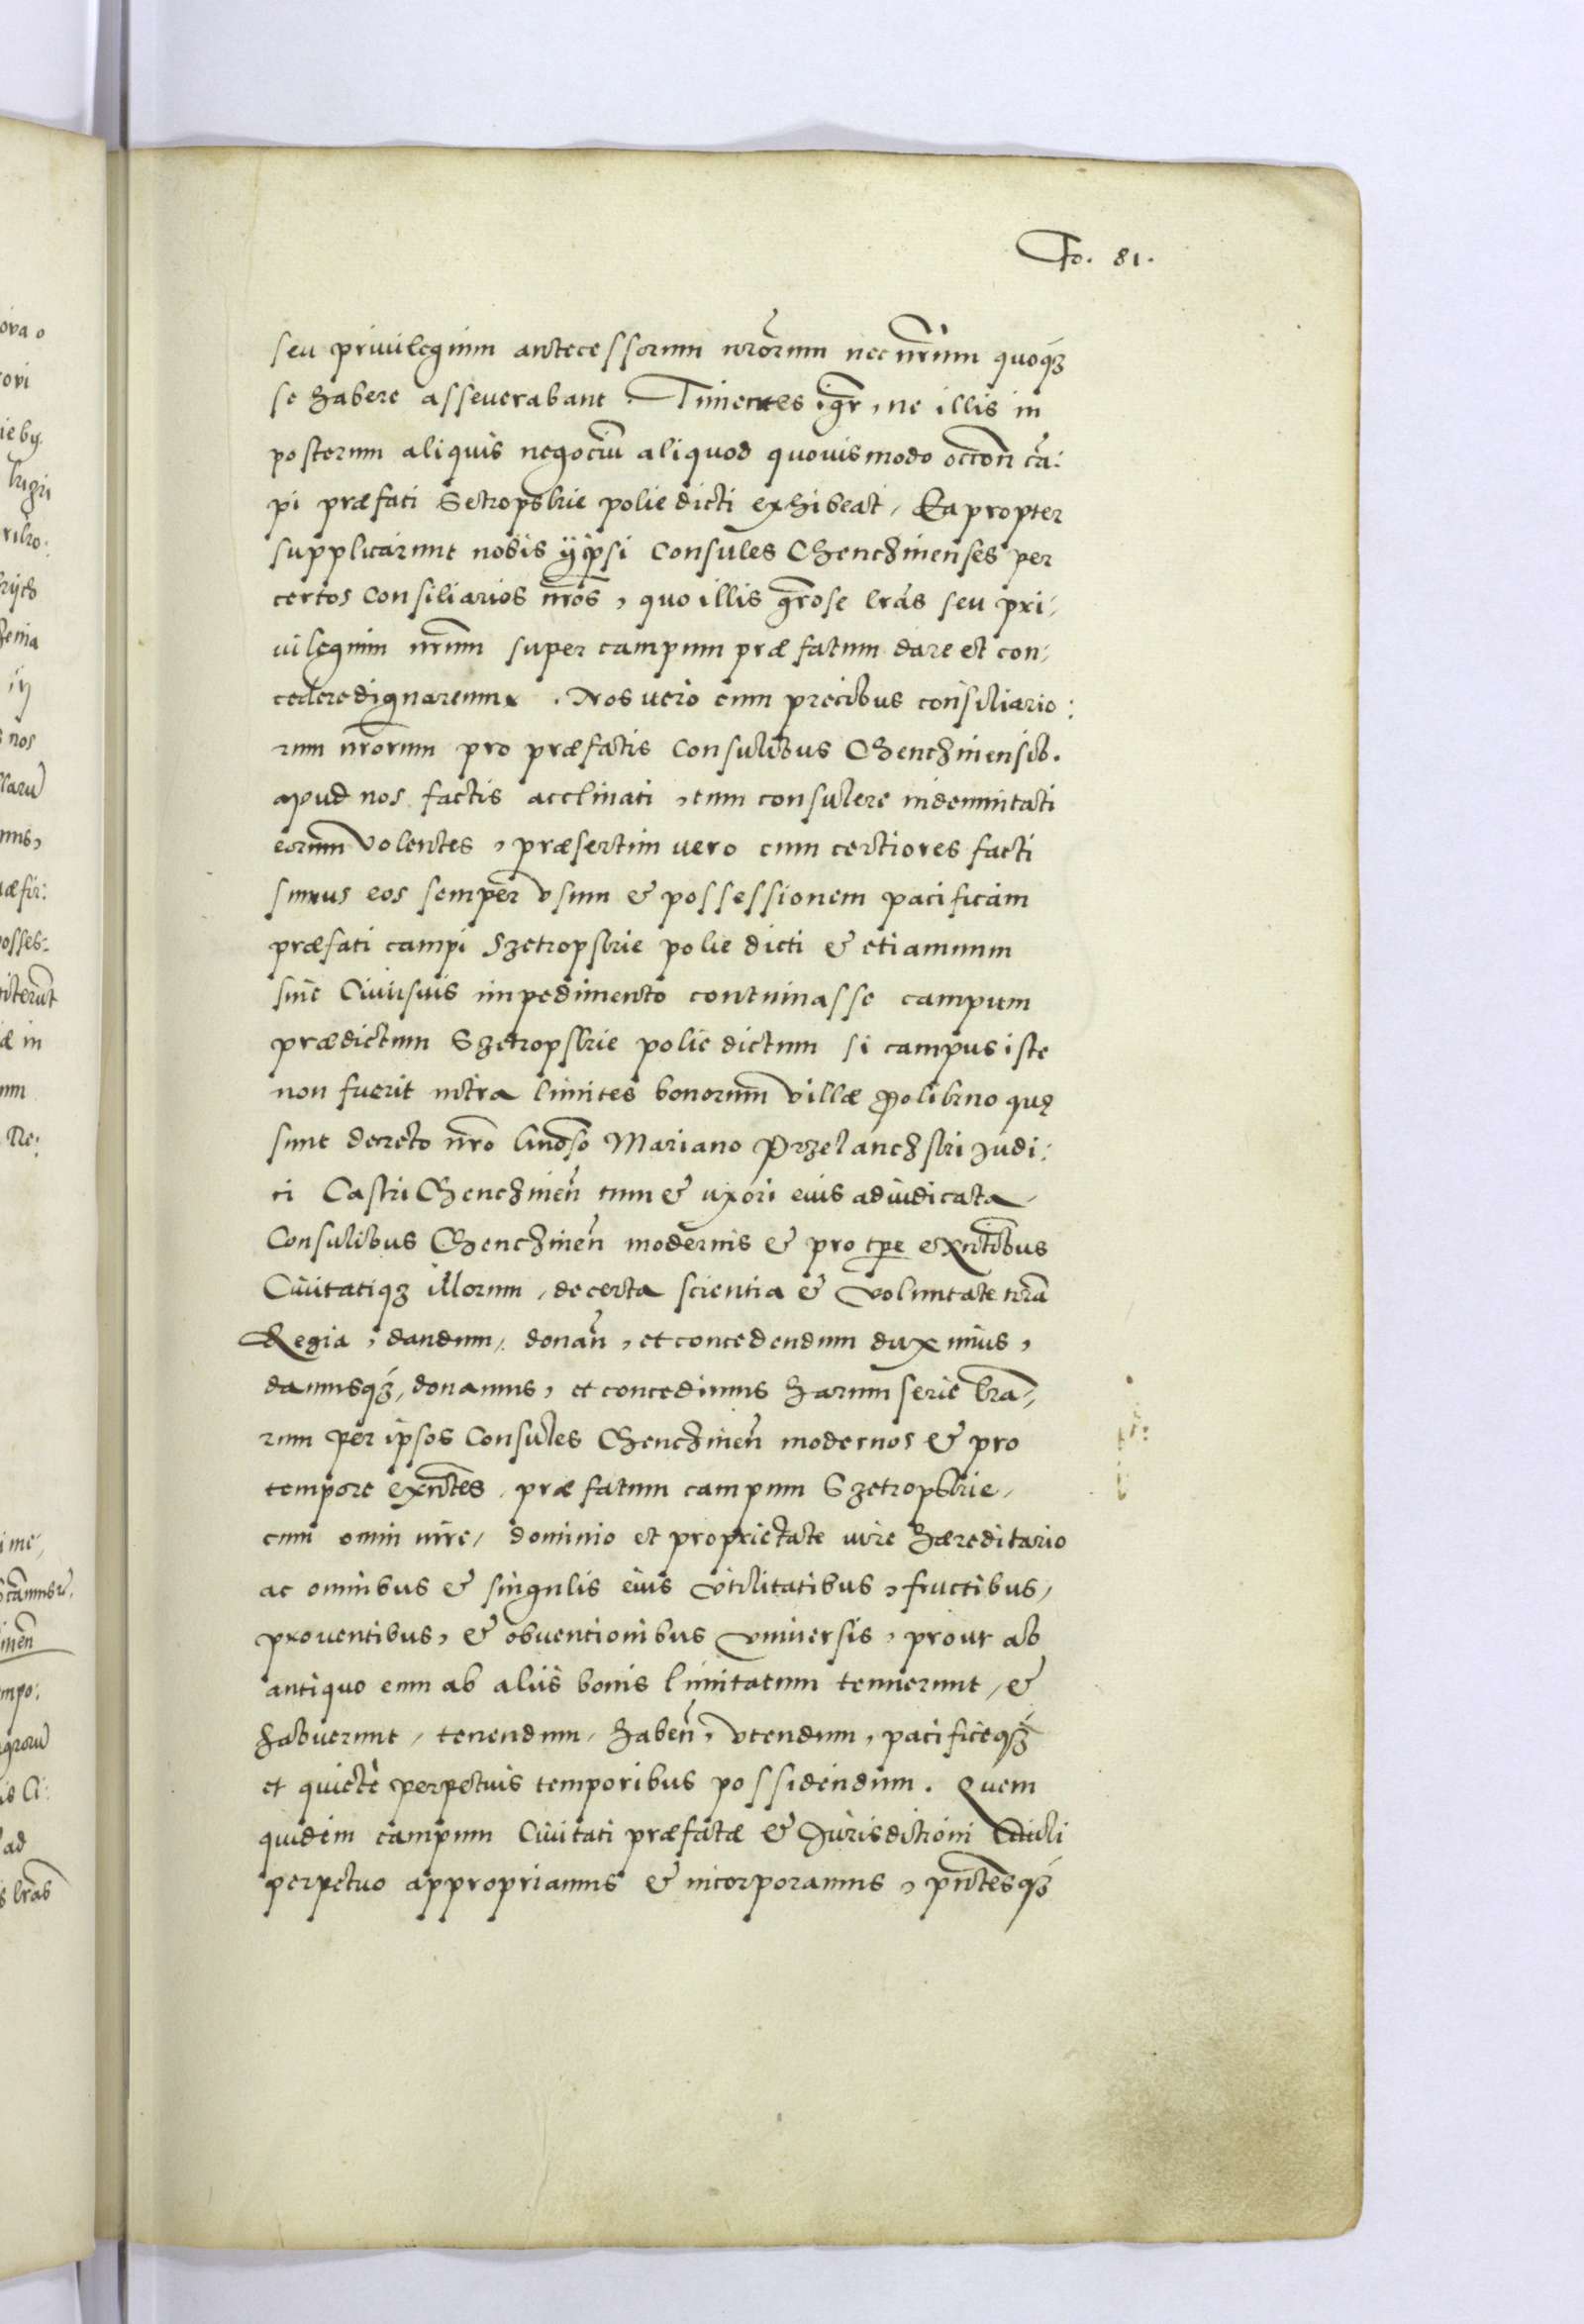 Fo. 81.
seu priuilegium antecessorum nrõrum nec nrũm quoq3
se habere asseverabant. Timentes igr̃, ne illis in
posterum aliquis negociũ aliquod quouis modo occon̄ cã:
pi præfati Setropskie polie dicti exhibeat, Ea propter
supplicarunt nobis ijp̃si Consules Chenczinenses per
certos Consiliarios nr̃os, quo illis gr̃ose lrãs seu pri-
uilegium nrũm super campum præfatum dare et con-
cedere dignaremur. Nos vero eum precibus consiliario:
rum nr̃orum pro præfatis Consulibus Chenczinensib.
apud nos factis acclinati, tum consulere indemnitati
eorum volentes, præsertim uero cum certiores facti
simus eos semper vsum & possessionem pacificam
præfati campi Szetropskie polie dicti & etiamnum
sine Ciuiusuis impedimento continuasse campum
prædictum Szetropskie polie dictum si campus iste
non fuerit intra limites bonorum villæ Polibrno quę
sunt decreto nr̃o Mariano Przelanczski Judi:
ci Castri Chenczinen̄ tum & uxori eius adiudicata
Consulibus Chenczinen̄ modernis & pro tp̃e exñtibus
Ciuitatiq3 illorum, de certa scientia & voluntate nrã
Regia, dandum, donan̄, et concedendum duximus,
damusq3, donamus, et concedimus harum serie lrã-
rum per ipsos Consules Chenczinen̄ modernos & pro
tempore exñtes, præfatum campum Szetropskie,
cum omni iure, dominio et proprietate iure hæreditario
ac omnibus & singulis eius vtilitatibus, fructibus,
prouentibus, & obuentionibus vniuersis, prout ab
antiquo eum ab aliis bonis limitatum tenuerunt, &
habuerunt, tenendum, haben̄, vtendum, pacificeq3
et quietè perpetuis temporibus possidendum. Quem
quidem campum Ciuitati præfatæ & Jurisdictioni
perpetuo appropriamus & incorporamus, pn̄tesq3